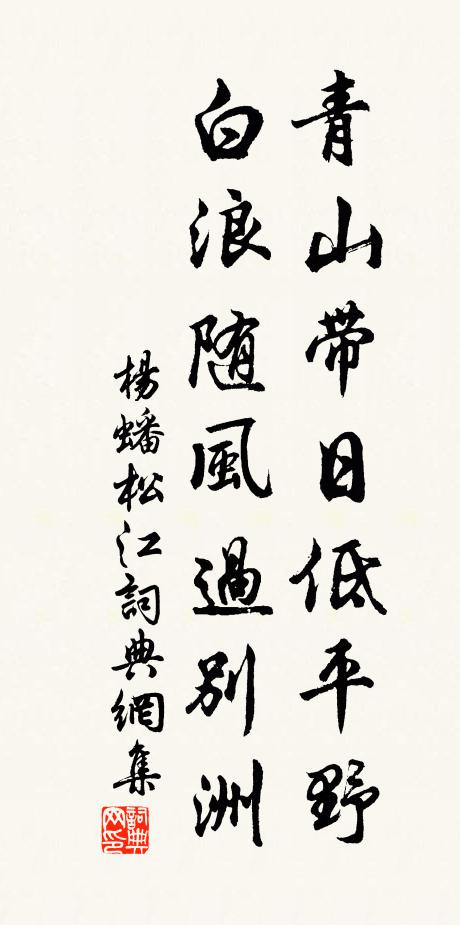 青山带日低平野
白浪随風過别洲
楊蟠松江詞典網集
詞典
网印